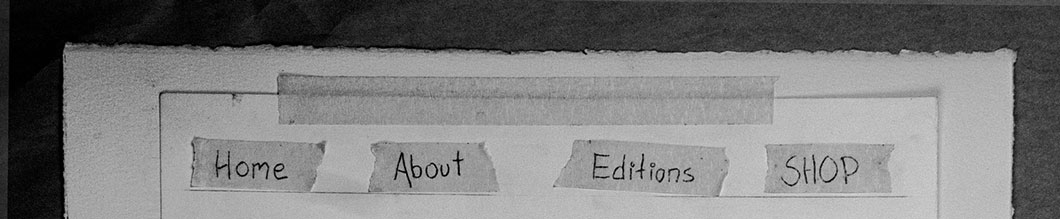 Home About Editions SHOP